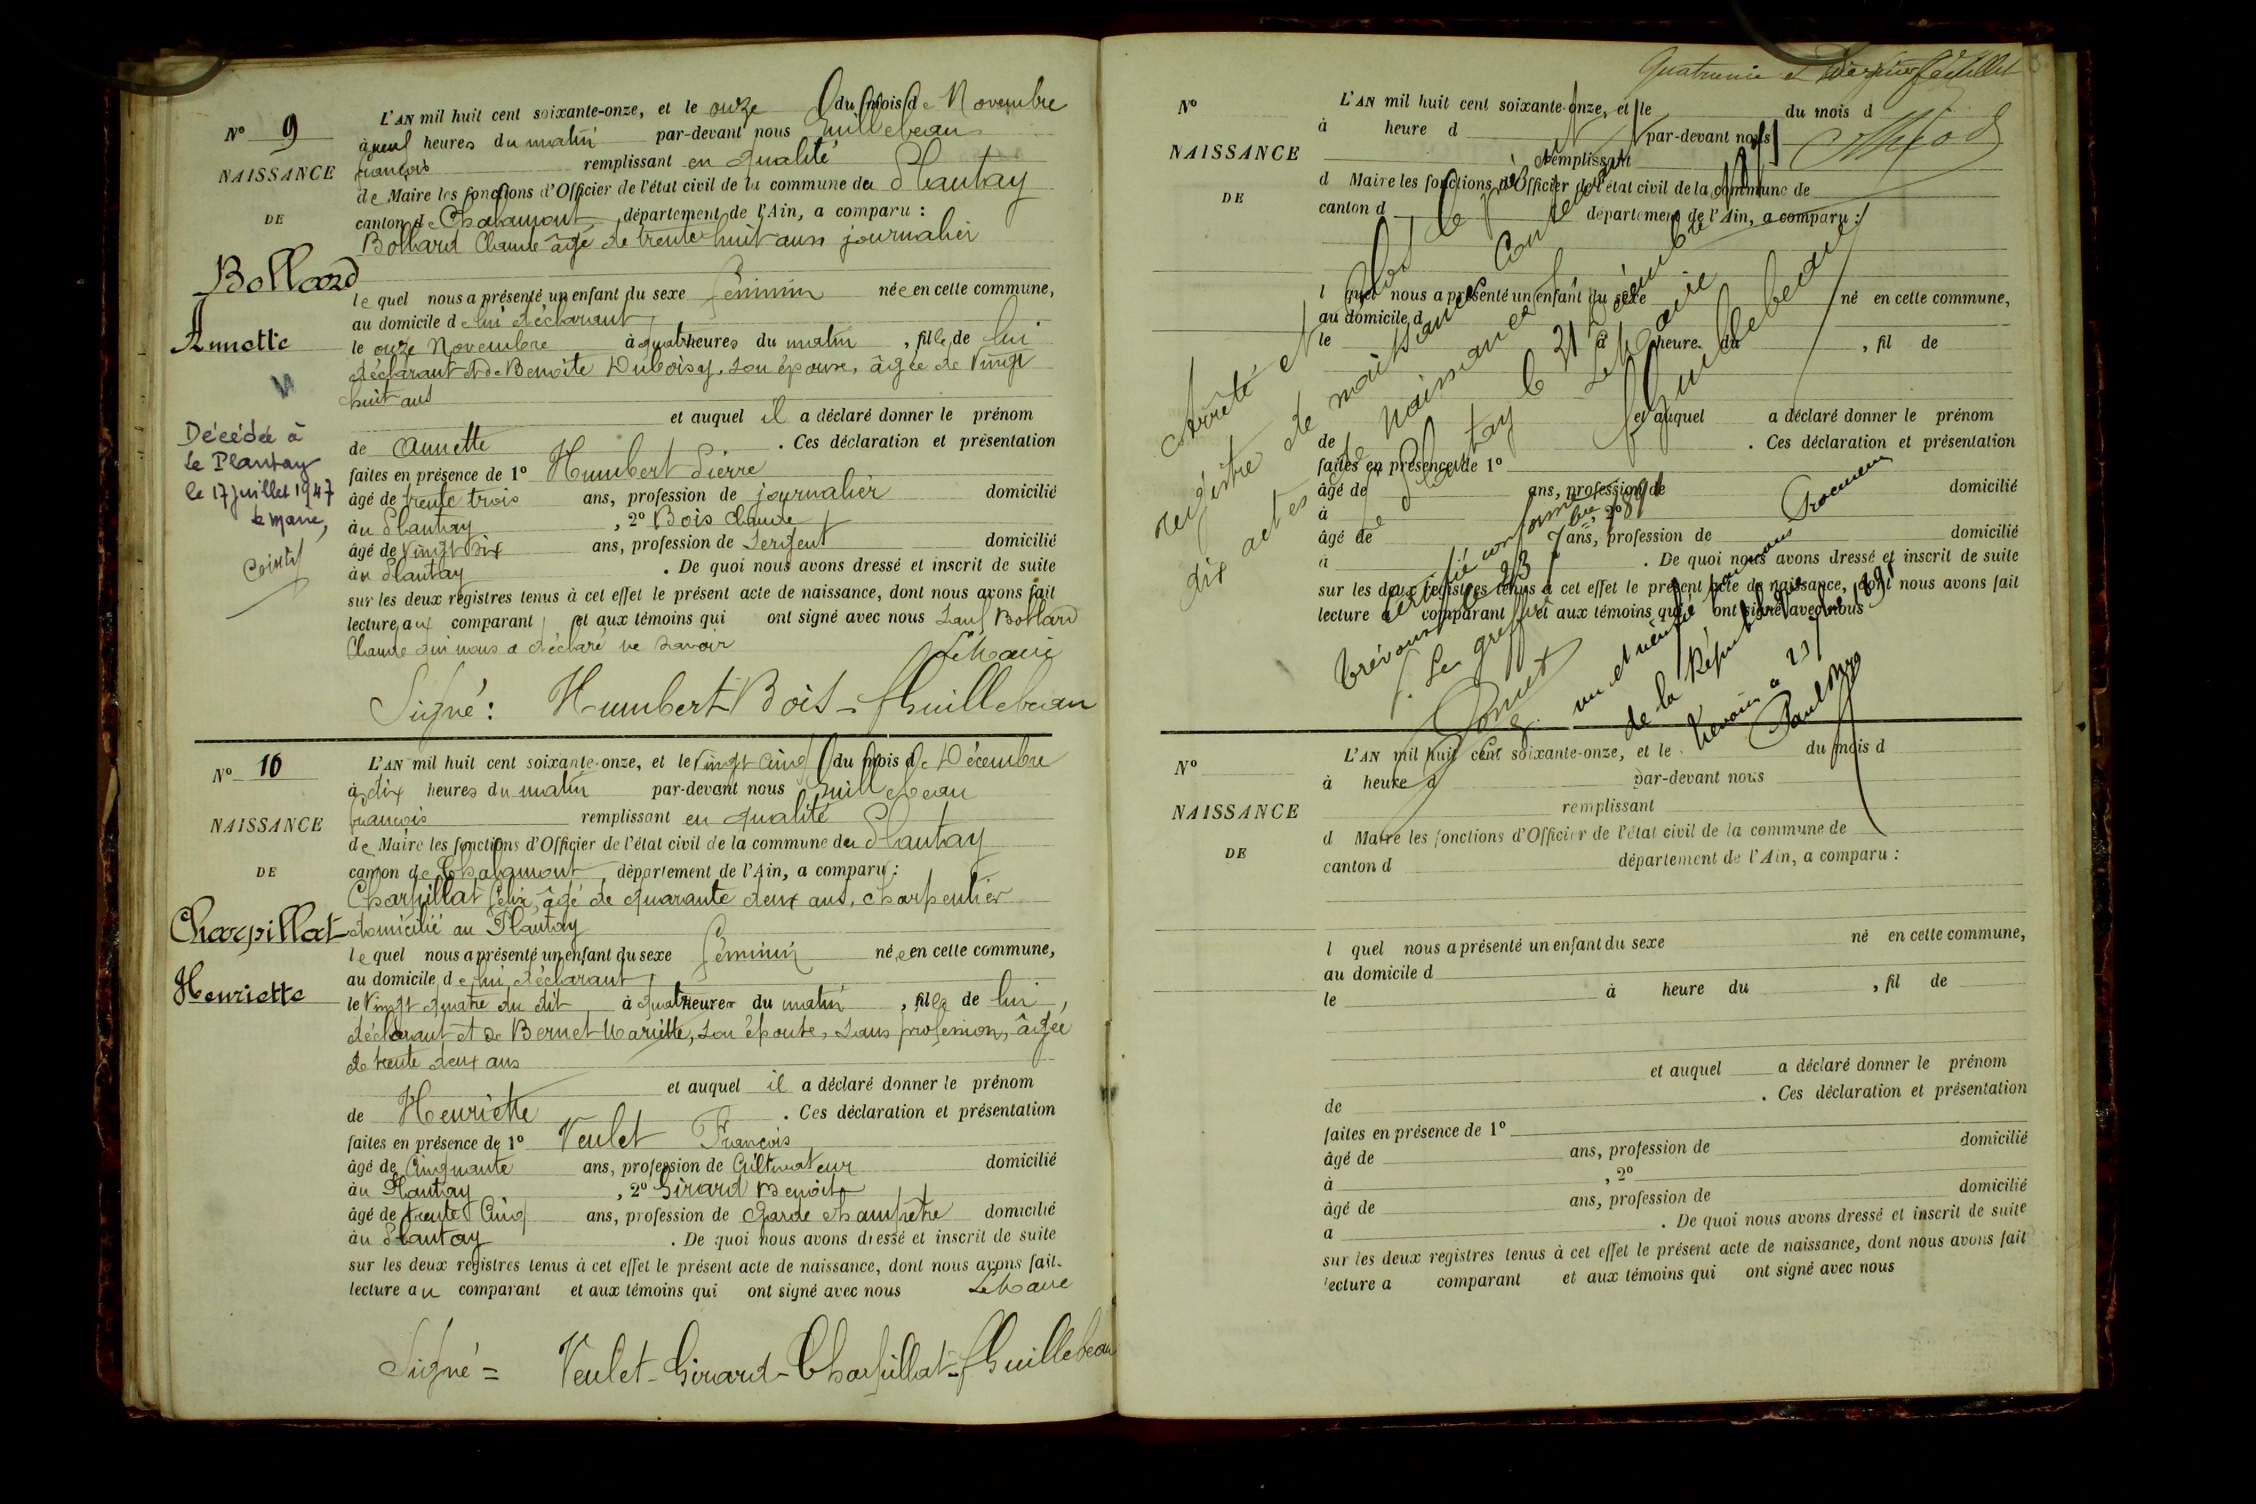 N° 9
NAISSANCE
DE
Bollard
Annette
Décédée à
Le Plantay
le 17 juillet 1947
Le Maire,
L'AN mil huit cent soixante-onze, et le onze du mois de Novembre
à neuf heures du matin par-devant nous Guillebeau
françois remplissant en qualité
de Maire les fonctions d'Officier de l'état civil de la commune du Plantay
canton de Chalamont département de l'Ain, a comparu :
Bollard Claude âgé de trente huit ans journalier
lequel nous a présenté un enfant du sexe féminin née en cette commune,
au domicile de lui déclarant,
le onze Novembre à quatre heures du matin, fille de lui
déclarant et de Benoite Duboisy, son épouse, âgée de vingt
huit ans
et auquel il a déclaré donner le prénom
de Annette. Ces déclaration et présentation
faites en présence de 1° Humbert Pierre
âgé de trente trois ans, profession de journalier domicilié
àu Plantay, 2° Bois Claude
âgé de vingt six ans, profession de Sergent domicilié
àu Plantay. De quoi nous avons dressé et inscrit de suite
sur les deux registres tenus à cet effet le présent acte de naissance, dont nous avons fait
lecture aux comparant et aux témoins qui ont signé avec nous Sauf Bollard
Claude qui nous a déclaré ne savoir
Le Maire
Signé : Humbert-Bois-fGuillebeau
N° 10
NAISSANCE
DE
Charpillat
Henriette
L'AN mil huit cent soixante-onze, et le Vingt Cinq du mois de Décembre
à dix heures du matin par-devant nous Guillebeau
françois remplissant en qualité
de Maire les fonctions d'Officier de l'état civil de la commune du Plantay
canton de Chalamont, département de l'Ain, a comparu :
Charpillat félix, âgé de quarante deux ans, charpentier
domicilié au Plantay
lequel nous a présenté un enfant du sexe féminin née en cette commune,
au domicile de lui déclarant,
le Vingt quatre du dit à quatre heures du matin, fille de lui,
déclarant et de Bernet Mariette, son épouse, sans profession, âgée
de trente deux ans
et auquel il a déclaré donner le prénom
de Henriette. Ces déclaration et présentation
faites en présence de 1° Veulet François
âgé de Cinquante ans, profession de Cultivateur domicilié
àu Plantay, 2° Girard Benoit
âgé de trente Cinq ans, profession de Garde champêtre domicilié
àu Plantay. De quoi nous avons dressé et inscrit de suite
sur les deux registres tenus à cet effet le présent acte de naissance, dont nous avons fait
lecture au comparant et aux témoins qui ont signé avec nous Le Maire
Signé = Veulet-Girard-Charpillat-fGuillebeau
Quatrième et Dernier feuillet
N°
NAISSANCE
DE
L'AN mil huit cent soixante-onze, et le du mois d
à heure d par-devant nous
remplissant
d Maire les fonctions d'Officier de l'état civil de la commune de
canton d département de l'Ain, a comparu :
l quel nous a présenté un enfant du sexe né en cette commune,
au domicile d
le à heure du, fil de
et auquel a déclaré donner le prénom
de. Ces déclaration et présentation
faites en présence de 1°
âgé de ans, profession de domicilié
à, 2°
âgé de ans, profession de domicilié
à. De quoi nous avons dressé et inscrit de suite
sur les deux registres tenus à cet effet le présent acte de naissance, dont nous avons fait
lecture a comparant et aux témoins qui ont signé avec nous
Arrêté et clos le présent
registre de naissances contenant
dix actes de naissances
Plantay le 31 Décembre
Le Maire
fGuillebeau
certifié conforme
Trévoux le 23 7bre 1891
Le greffier
vu et vérifié par nous Procureur
de la République
Trévoux 23
N°
NAISSANCE
DE
L'AN mil huit cent soixante-onze, et le du mois d
à heure d par-devant nous
remplissant
d Maire les fonctions d'Officier de l'état civil de la commune de
canton d département de l'Ain, a comparu :
l quel nous a présenté un enfant du sexe né en cette commune,
au domicile d
le à heure du, fil de
et auquel a déclaré donner le prénom
de. Ces déclaration et présentation
faites en présence de 1°
âgé de ans, profession de domicilié
à, 2°
âgé de ans, profession de domicilié
a. De quoi nous avons dressé et inscrit de suite
sur les deux registres tenus à cet effet le présent acte de naissance, dont nous avons fait
lecture a comparant et aux témoins qui ont signé avec nous